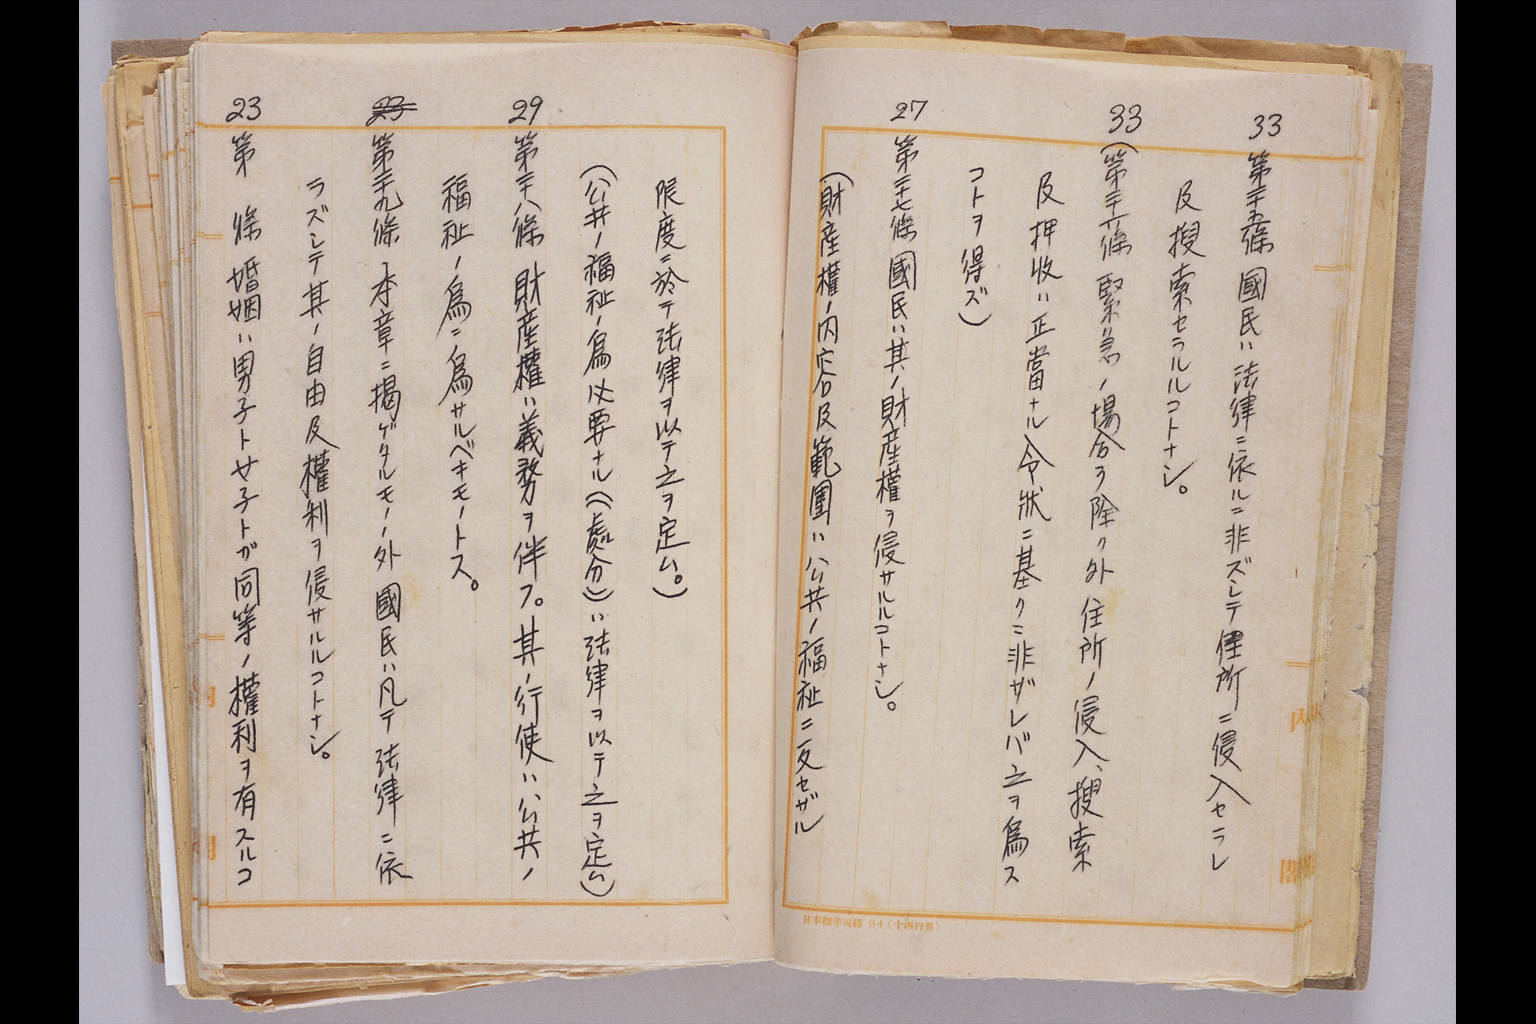 33
第二十五條 國民ハ法律ニ依ルニ非ズシテ住所ニ侵入セラレ
及搜索セラルルコトナシ。
33
(第二十六條 緊急ノ場合ヲ除ク外住所ノ侵入、搜索
及押收ハ正當ナル令狀ニ基クニ非ザレバ之ヲ爲ス
コトヲ得ズ)
27
第二十七條 國民ハ其ノ財産權ヲ侵サルルコトナシ。
(財産權ノ内容及範圍ハ公共ノ福祉ニ反セザル
日本標準規格 B4(十四行界)
限度ニ於テ法律ヲ以テ之ヲ定ム。)
(公共ノ福祉ノ爲必要ナル(處分)ハ法律ヲ以テ之ヲ定ム)
29
第二十八條 財産權ハ義務ヲ伴フ。其ノ行使ハ公共ノ
福祉ノ爲ニ爲サルベキモノトス。
23
第二十九條 本章ニ揭ゲタルモノノ外國民ハ凡テ法律ニ依
ラズシテ其ノ自由及權利ヲ侵サルルコトナシ。
23
第 條 婚姻ハ男子ト女子トガ同等ノ權利ヲ有スルコ
内
閣